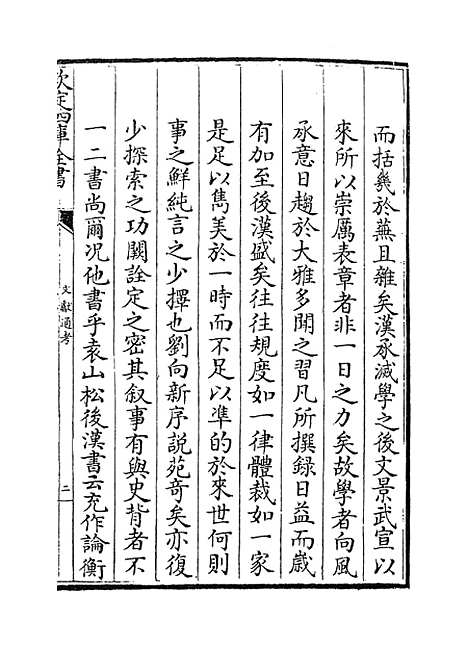 而括㡬於蕪且雜矣漢承滅學之後文景武宣以
來所以崇厲表章者非一日之力矣故學者向風
承意日趨於大雅多聞之習凡所撰録日益而嵗
有加至後漢盛矣往往規度如一律體裁如一家
是足以雋美於一時而不足以凖的於來世何則
事之鮮純言之少擇也劉向新序說苑奇矣亦復
少探索之功闕詮定之密其叙事有與史背者不
一二書尚爾况他書乎袁山松後漢書云充作論衡
欽定四庫全書
文獻通考
二